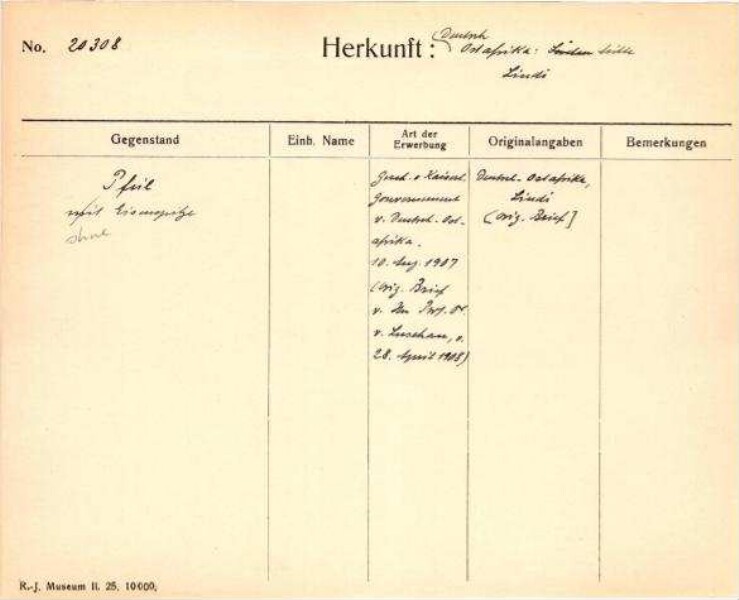 No. 20308
Herkunft: (Deutsch
Ostafrika:
Lindi
Gegenstand
Einh. Name
Art der
Erwerbung
Originalangaben
Bemerkungen
Pfeil
mit Eisenspitze
ohne
Gesch. v. Kaiserl.
Gouvernement
v. Deutsch-Ost-
afrika.
10. Aug. 1907
(orig. Brief
v. Hn Prof. Dr.
v. Luschan, v.
28. April 1908)
Deutsch-Ostafrika,
Lindi
(orig. Brief]
R.-J. Museum II. 25. 10000.